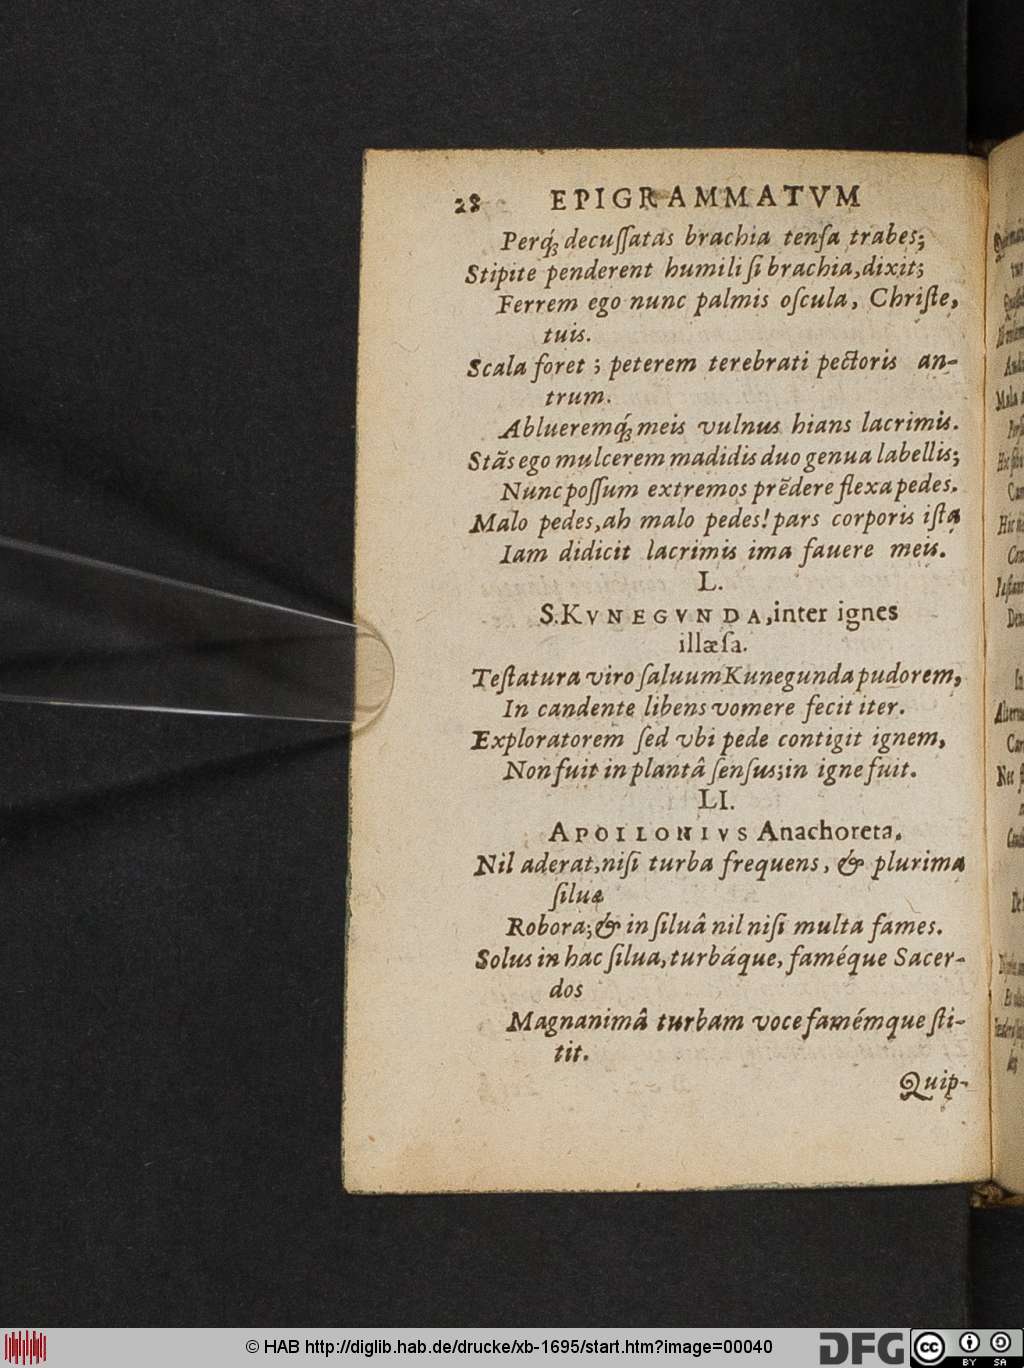 28 EPIGRAMMATVM
Perq́; decuſſatas brachia tenſa trabes;
Stipite penderent humili ſi brachia, dixit;
Ferrem ego nunc palmis oſcula, Chriſte,
tuis.
Scala foret ; peterem terebrati pectoris an-
trum.
Ablueremq́; meis vulnus hians lacrimis.
Stãs ego mulcerem madidis duo genua labellis;
Nunc poſſum extremos prẽdere flexa pedes.
Malo pedes, ah malo pedes! pars corporis iſta
Iam didicit lacrimis ima fauere meis.
L.
S. KVNEGVNDA, inter ignes
illæſa.
Teſtatura viro ſaluum Kunegunda pudorem,
In candente libens vomere fecit iter.
Exploratorem ſed vbi pede contigit ignem,
Non fuit in plantâ ſenſus; in igne fuit.
LI.
APOLLONIVS Anachoreta.
Nil aderat, niſi turba frequens, & plurima
ſiluæ
Robora; & in ſiluâ nil niſi multa fames.
Solus in hac ſilua, turbáque, faméque Sacer-
dos
Magnanimâ turbam voce famémque ſti-
tit.
Quip-
© HAB http://diglib.hab.de/drucke/xb-1695/start.htm?image=00040
DFG cc BY SA